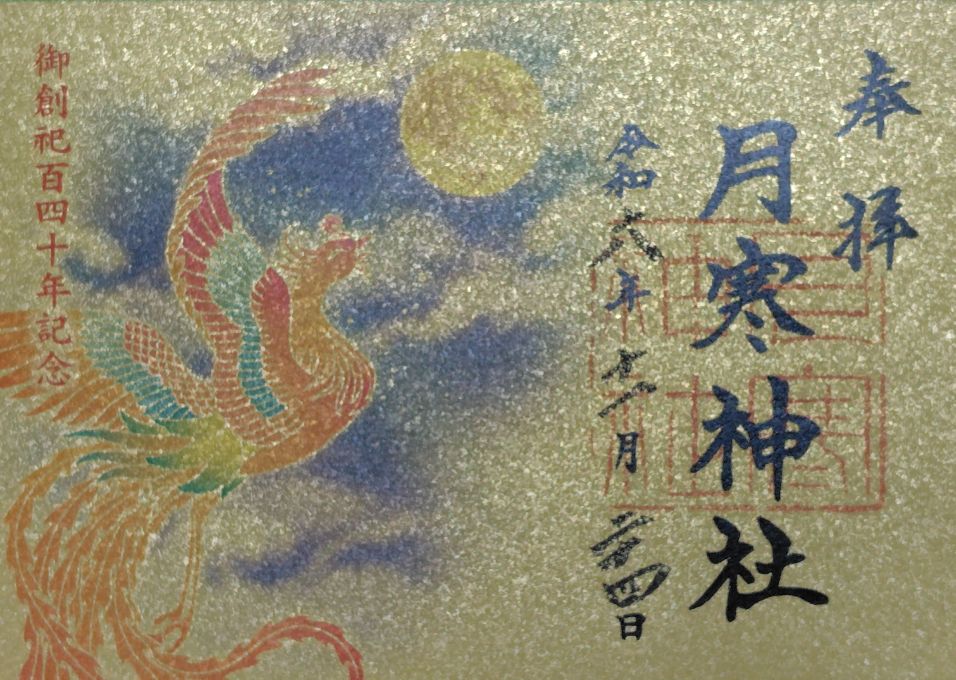 奉拝
月寒神社
令和六年十一月二十四日
御創祀百四十年記念